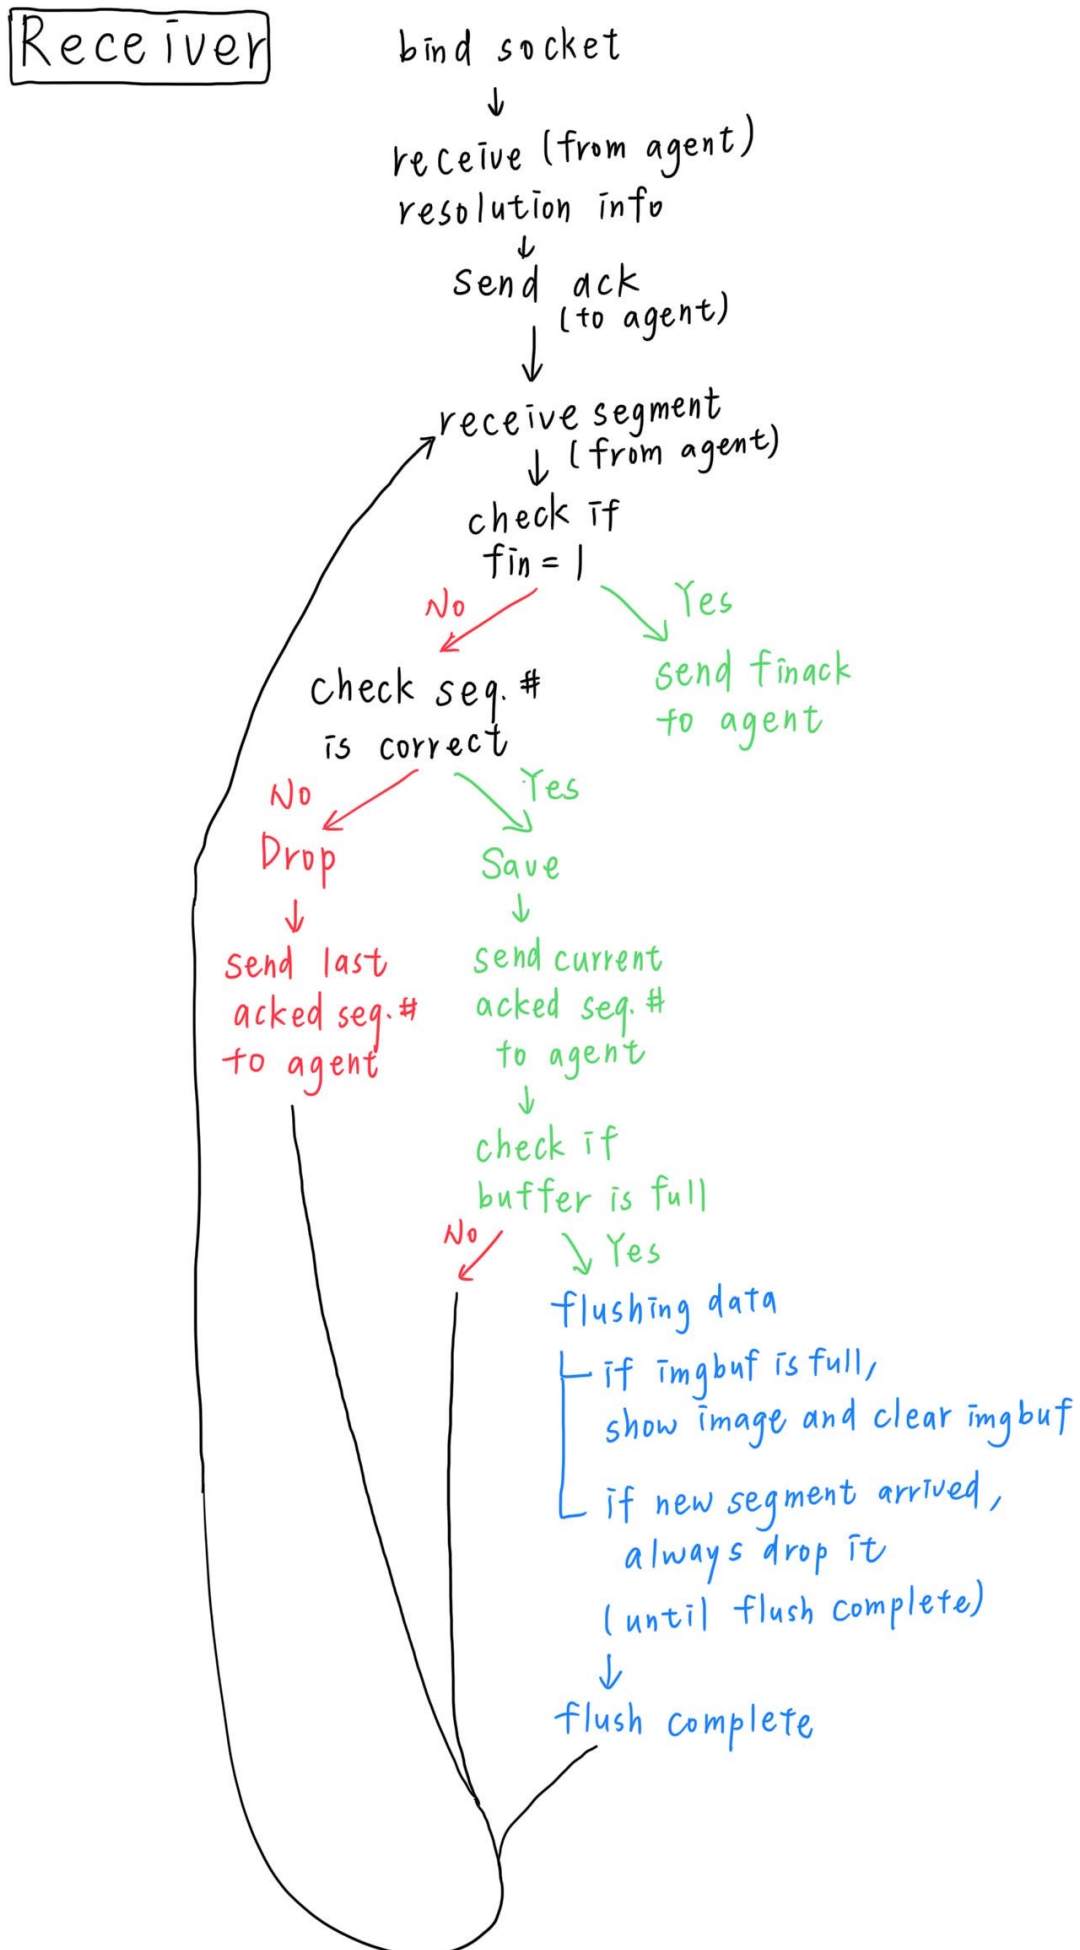 Receiver
bind socket
receive (from agent)
resolution info
send ack
(to agent)
receive segment
(from agent)
check if
fin = 1
No
Yes
check seq. #
is correct
send finack
to agent
No
Yes
Drop
Save
send last
acked seq. #
to agent
send current
acked seq. #
to agent
check if
buffer is full
No
Yes
flushing data
if imgbuf is full,
show image and clear imgbuf
if new segment arrived,
always drop it
(until flush complete)
flush complete